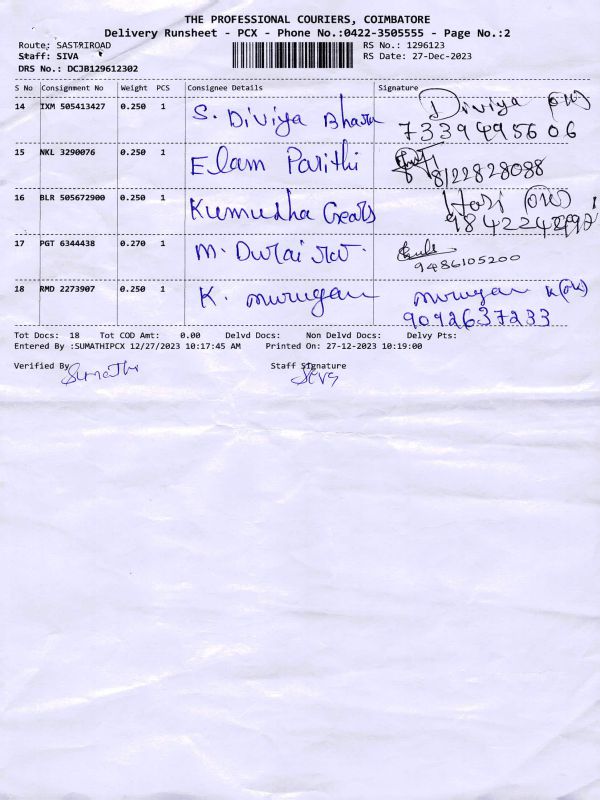 THE PROFESSIONAL COURIERS, COIMBATORE
Delivery Runsheet - PCX - Phone No.:0422-3505555 - Page No.:2
Route: SASTRIROAD RS No.: 1296123
Staff: SIVA RS Date: 27-Dec-2023
DRS No.: DCJB129612302
S No Consignment No Weight PCS Consignee Details Signature
14 IXM 505413427 0.250 1 S. Diviya Bharu Diviya (ow)
7339495606
15 NKL 3290076 0.250 1 Elam Parithi
8122828088
16 BLR 505672900 0.250 1 Kumudha Gears Hari (ow)
17 PGT 6344438 0.270 1 M. Durai
9486105200
18 RMD 2273907 0.250 1 K. murugan murugan k (ow)
9092637233
Tot Docs: 18 Tot COD Amt: 0.00 Delvd Docs: Non Delvd Docs: Delvy Pts:
Entered By :SUMATHIPCX 12/27/2023 10:17:45 AM Printed On: 27-12-2023 10:19:00
Verified By Sumathi Staff Signature Siva